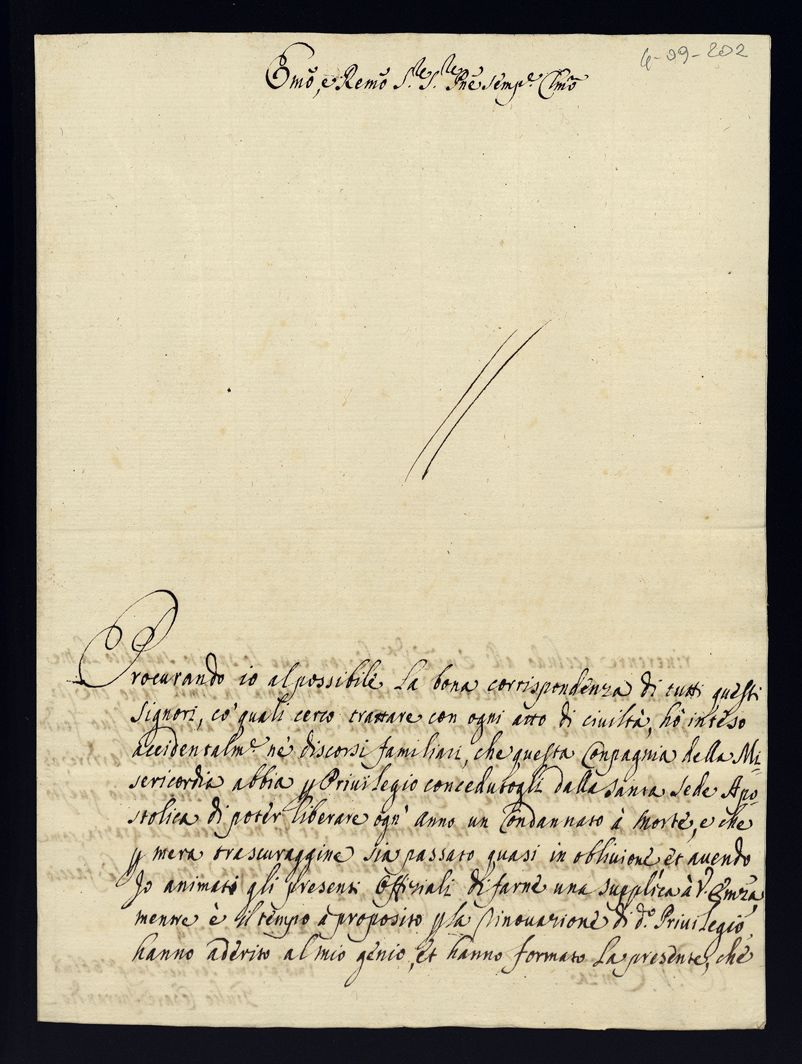 6-09-202
Emo, e Remo S.re S.re Pne semp.e Clmo
Procurando io al possibile La bona corrispondenza di tutti questi
Signori, co' quali cerco trattare con ogni atto di civiltà, hò inteso
accidentalm.e ne discorsi familiari, che questa Conpagnia della Mi=
sericordia abbia p Privilegio concedutogli dalla Santa Sede Apo=
stolica di poter liberare ogn' anno un Condannato à Morte, e che
p mera trascuraggine sia passato quasi in oblivione et avendo
Io animato gli presenti Offiziali di farne una supplica à V. Emza,
mentre è il tempo a proposito p la rinovazione di d.o Privilegio,
hanno aderito al mio genio, et hanno formato La presente, che